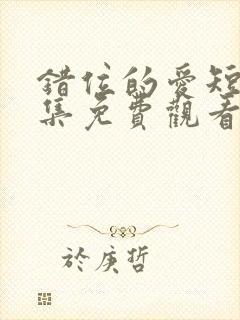 錯位的愛短
集免費觀看
於庚哲